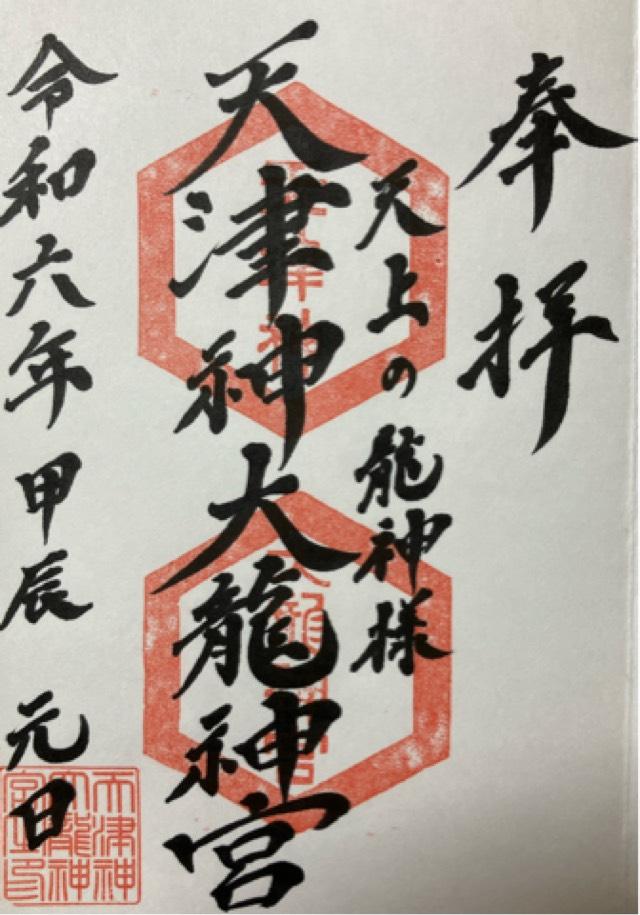 奉拝
天上の龍神様
天津神大龍神宮
令和六年甲辰元日
天津神
大龍神
宮之印